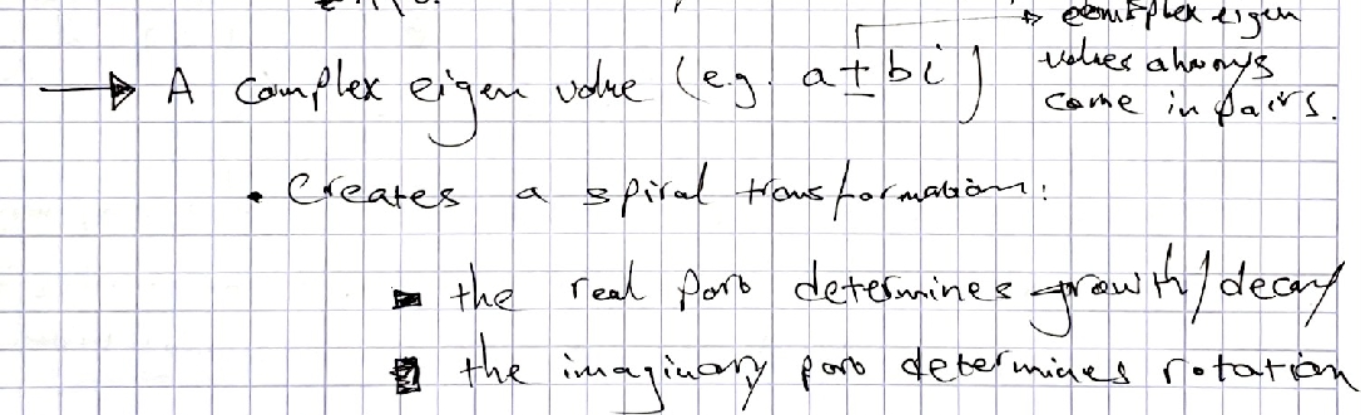 → A complex eigen value (e.g. a±bi)
→ complex eigen
values always
come in pairs.
• Creates a spiral transformation:
the real part determines growth/decay
the imaginary part determines rotation